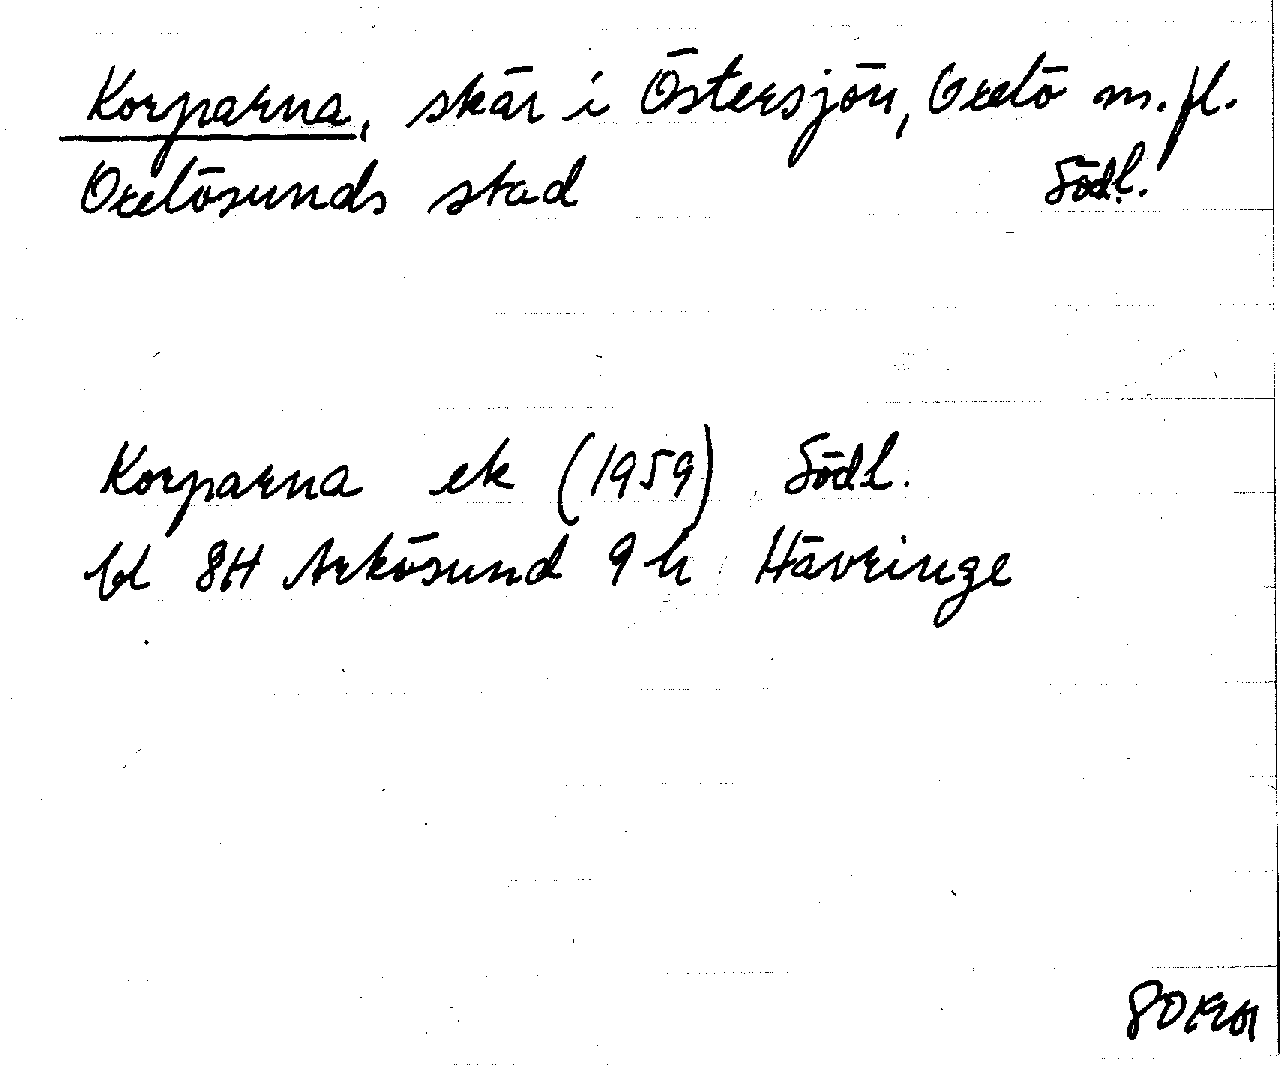 Korparna, skär i Östersjön, Oxelö m.fl.
Oxelösunds stad Södl.
Korparna ek (1959) Södl.
bl 8H Arkösund 9h Hävringe